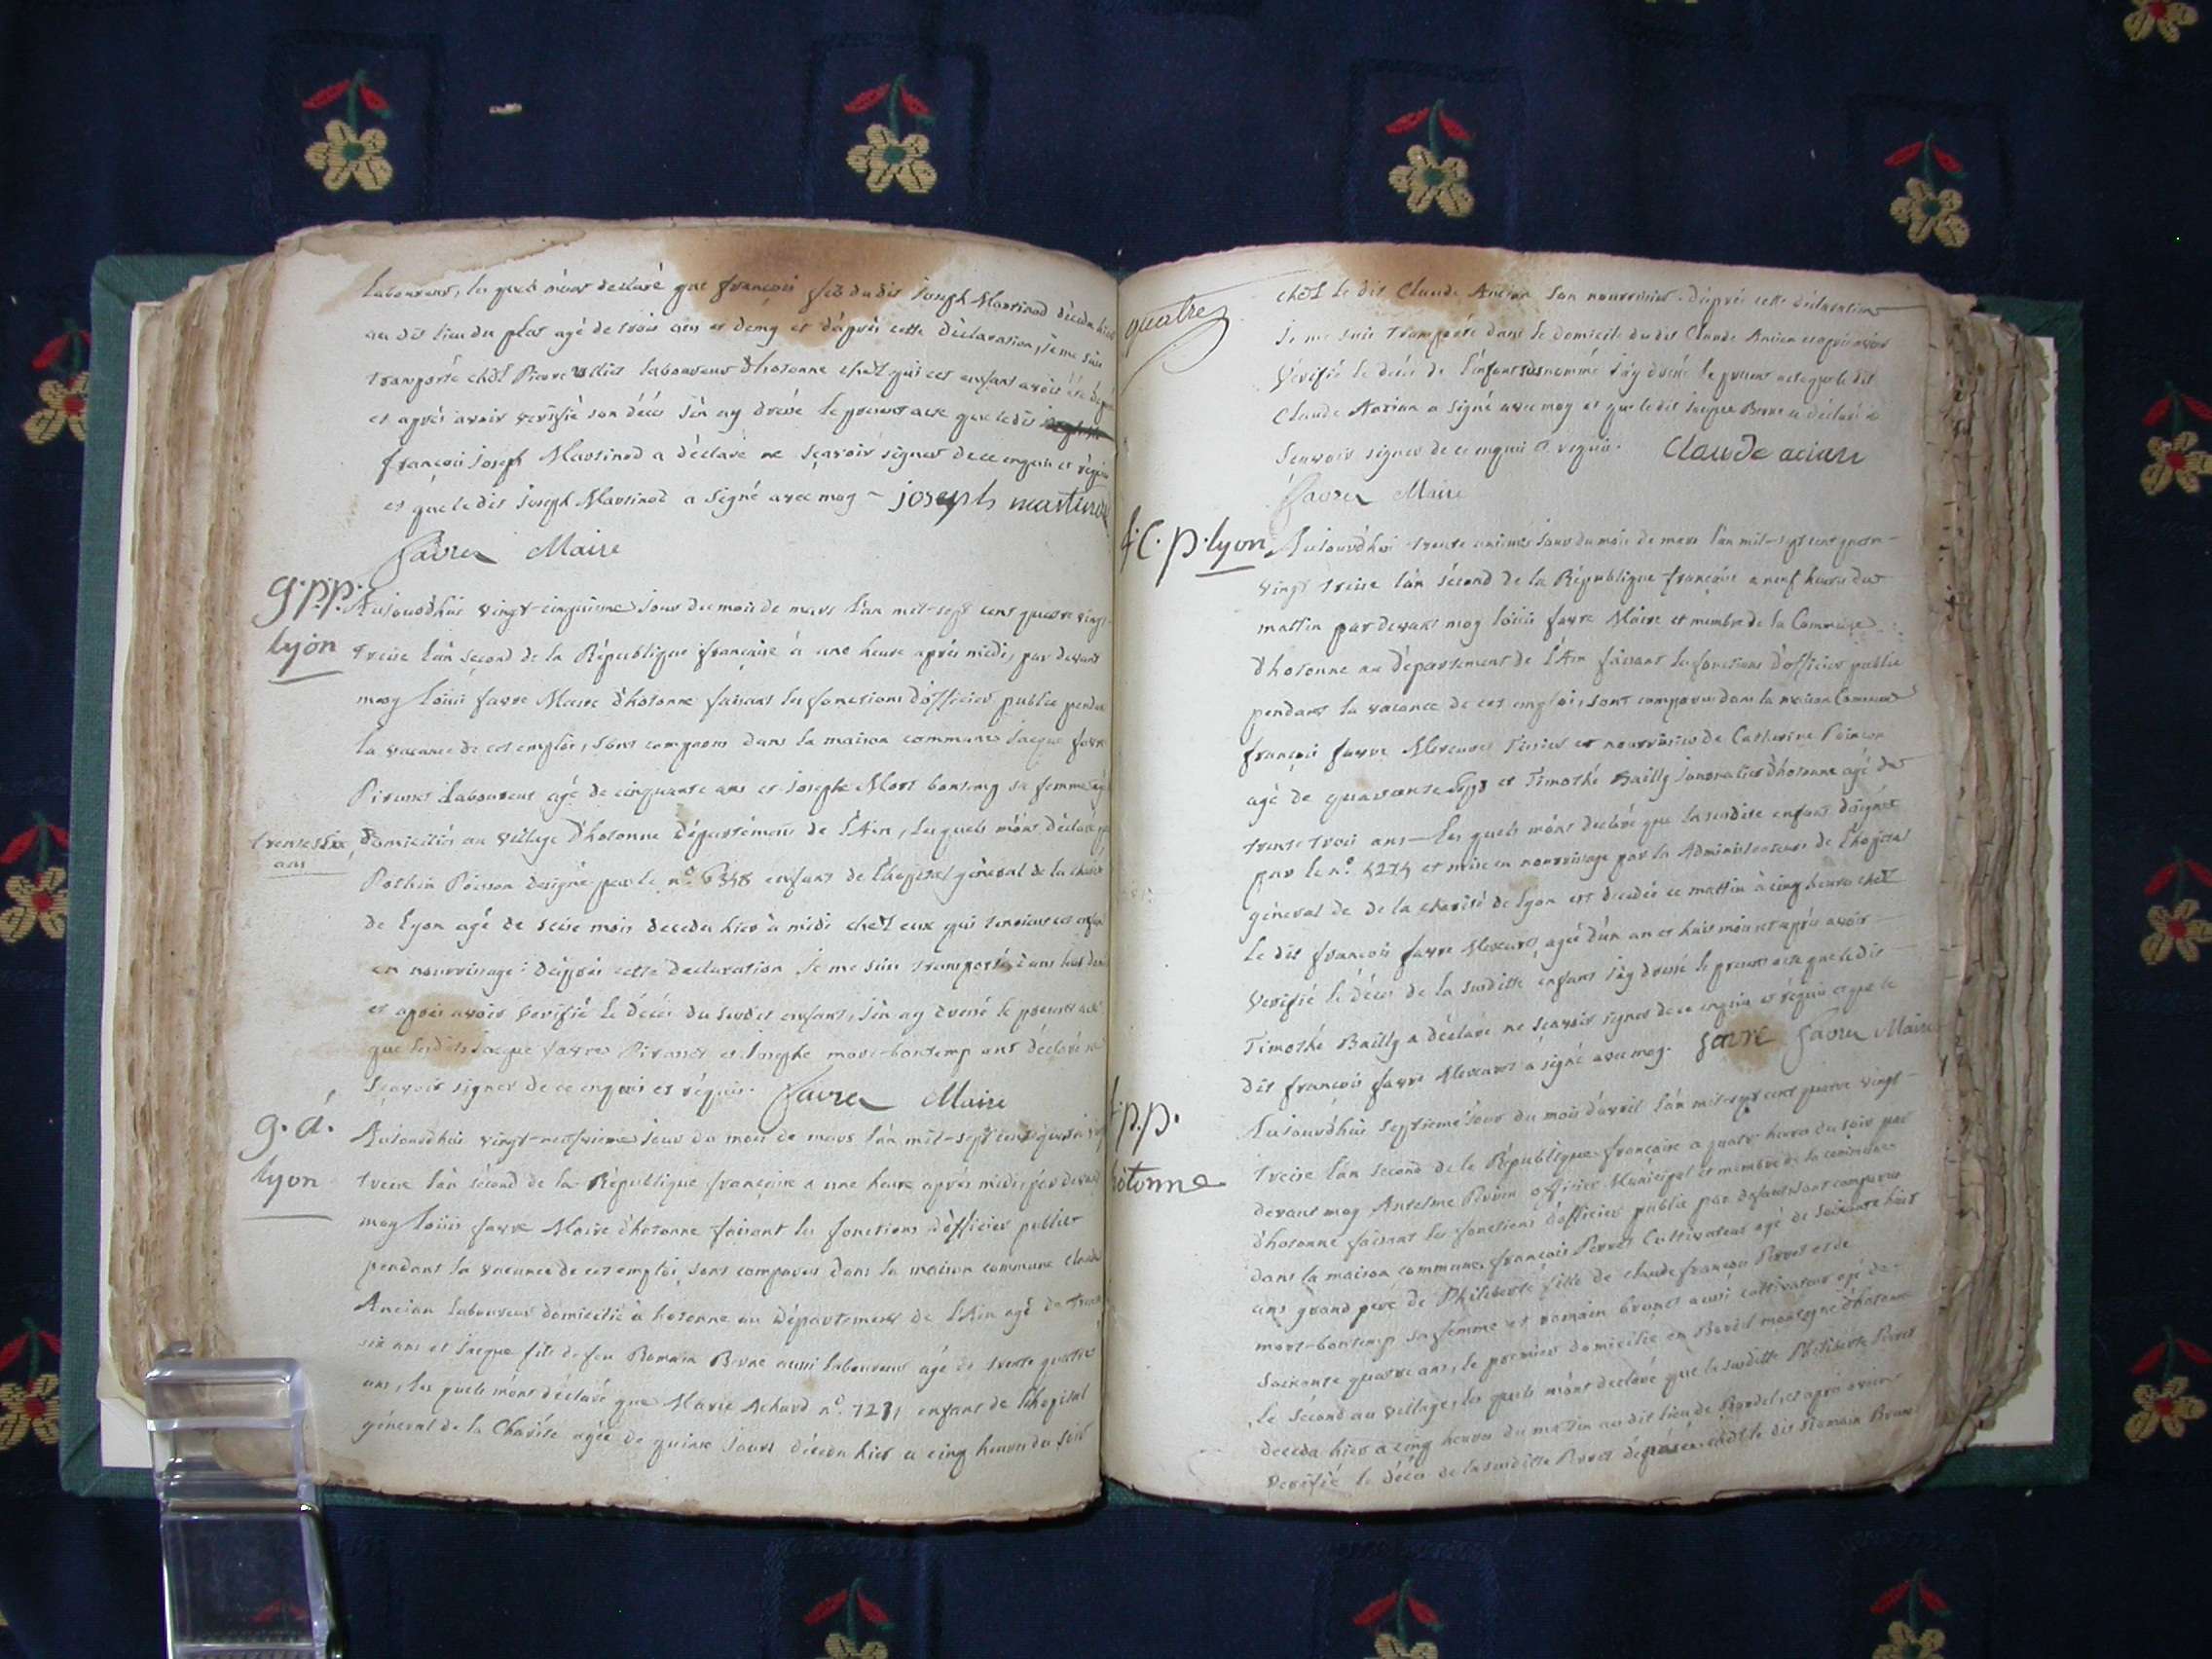 Laboureur, les quels m'ont declaré que françois fils dudit joseph Martinod deceda hier
au dit lieu du plat agé de trois ans et demy et d'après cette déclaration, je me suis
transporté chêt Pierre laboureur d'hotonne chêt qui cet enfant avoit été
et après avoir verifié son décès j'en ay dressé le present acte que ledit
françois joseph Martinod a déclaré ne sçavoir signer de ce enquis et requis
et que le dit joseph Martinod a signé avec moy ~ joseph martinod
favre Maire
g. p. p.
lyon
Aujourd'hui vingt-cinquieme jour du mois de mars l'an mil-sept cent quatre vingt
treise l'an second de la République française à une heure après midi, par devant
moy loüis favre Maire d'hotonne faisant les fonctions d'officier public pendant
la vacance de cet emploi, sont comparus dans la maison commune jacque favre
Pirouet Laboureur agé de cinquante ans et josephe Mort bontemp sa femme agée
trente six
ans
domiciliés au village d'hotonne Département de l'Ain, lesquels m'ont déclaré que
Pothin Poisson designé par le n.° 6348 enfant de l'hopital général de la charité
de Lyon agé de seise mois deceda hier à midi chêt eux qui tenoient cet enfant
en nourrissage : d'après cette declaration je me suis transporté dans leur
et après avoir verifié le décès du susdit enfant, j'en ay dressé le present acte
que lesdits jacque favre Pirouet et josephe mort-bontemp ont déclaré ne
sçavoir signer de ce enquis et requis. favre Maire
g. d.
lyon
Aujourd'hui vingt-neufvieme jour du mois de mars l'an mil-sept cent quatre vingt
treise l'an second de la République française a une heure après midi, par devant
moy loüis favre Maire d'hotonne faisant les fonctions d'officier public
pendant la vacance de cet emploi, sont comparus dans la maison commune claude
Ancian laboureur domicilié à hotonne au département de l'Ain agé de trente
six ans et jacque fils de feu Romain Berne aussi laboureur agé de trente quatre
ans, les quels m'ont déclaré que Marie Achard n.° 7231 enfant de l'hopital
général de la Charité agée de quinse jours deceda hier a cinq heures du soir
quatre
chêt le dit Claude Ancian son nourrisier. D'après cette déclaration
je me suis transporté dans le domicile du dit Claude Ancian et après avoir
Vérifié le décès de l'enfant susnommé j'ay dressé le present acte que le dit
Claude Ancian a signé avec moy et que le dit jacque Berne a déclaré ne
sçavoir signer de ce enquis & requis. Claude acian
favre Maire
f. C. p. lyon
Aujourd'hui trente unieme jour du mois de mars l'an mil-sept cent quatre-
vingt treise l'an second de la République française a neuf heures du
mattin par devant moy loüis favre Maire et membre de la Commune
d'hotonne au département de l'Ain faisant les fonctions d'officier public
pendant la vacance de cet emploi, sont comparus dans la maison Commune
françois favre tissier et nourrisier de Catherine Poinçon
agé de quarante et Timothé Bailly journalier d'hotonne agé de
trente trois ans — Les quels m'ont declaré que la susdite enfant désigné
par le n.° 4274 et mise en nourrissage par la Administrateurs de l'hopital
général de de la charité de lyon est decedée ce mattin à cinq heures chêt
Le dit françois favre agée d'un an et huit mois et après avoir
Verifié le décès de la susditte enfant j'ay dressé le present acte que le dit
Timothé Bailly a déclaré ne sçavoir signer de ce enquis et requis et que le
dit françois favre a signé avec moy. favre favre Maire
f. p. p.
hotonne
Aujourd'hui septieme jour du mois d'avril l'an mil-sept cent quatre vingt-
treise l'an second de la République française a quatr heures du soir par
devant moy Anselme officier Municipal et membre de la commune
d'hotonne faisant les fonctions d'officier public par défaut, sont comparus
dans la maison commune françois Perret Cultivateur agé de soixante huit
ans grand pere de Philiberte fille de claude françois Perret et de
mort-bontemp sa femme et romain brunet aussi cultivateur agé de
soixante quatre ans, le premier domicilié en montagne d'hotonne
le second au village, les quels m'ont declaré que la susditte Philiberte Perret
deceda hier a cinq heures du mattin au dit lieu de et après avoir
verifié le décès de la susditte Perret déposée chêt le dit Romain Brunet